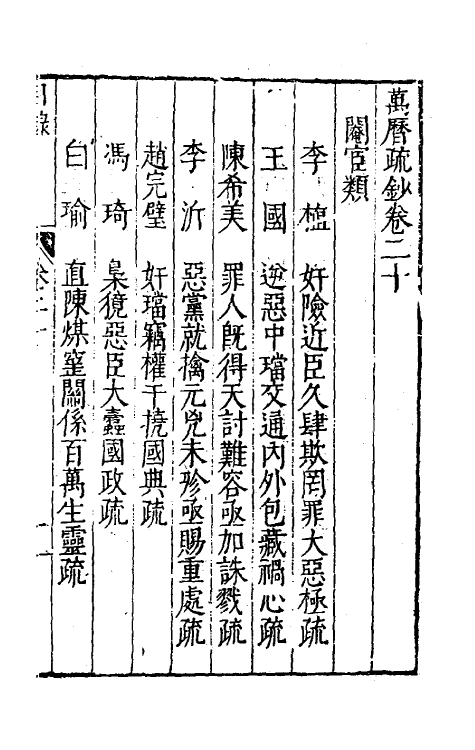 萬曆疏鈔卷二十
閹宦類
李植 奸險近臣久肆欺罔罪大惡極疏
王國 逆惡中璫交通內外包藏禍心疏
陳希美 罪人旣得天討難容亟加誅戮疏
李沂 惡黨就擒元兇未殄亟賜重處疏
趙完璧 奸璫竊權干撓國典疏
馮琦 梟獍惡臣大蠹國政疏
白瑜 直陳煤窰關係百萬生靈疏
目錄 卷二十